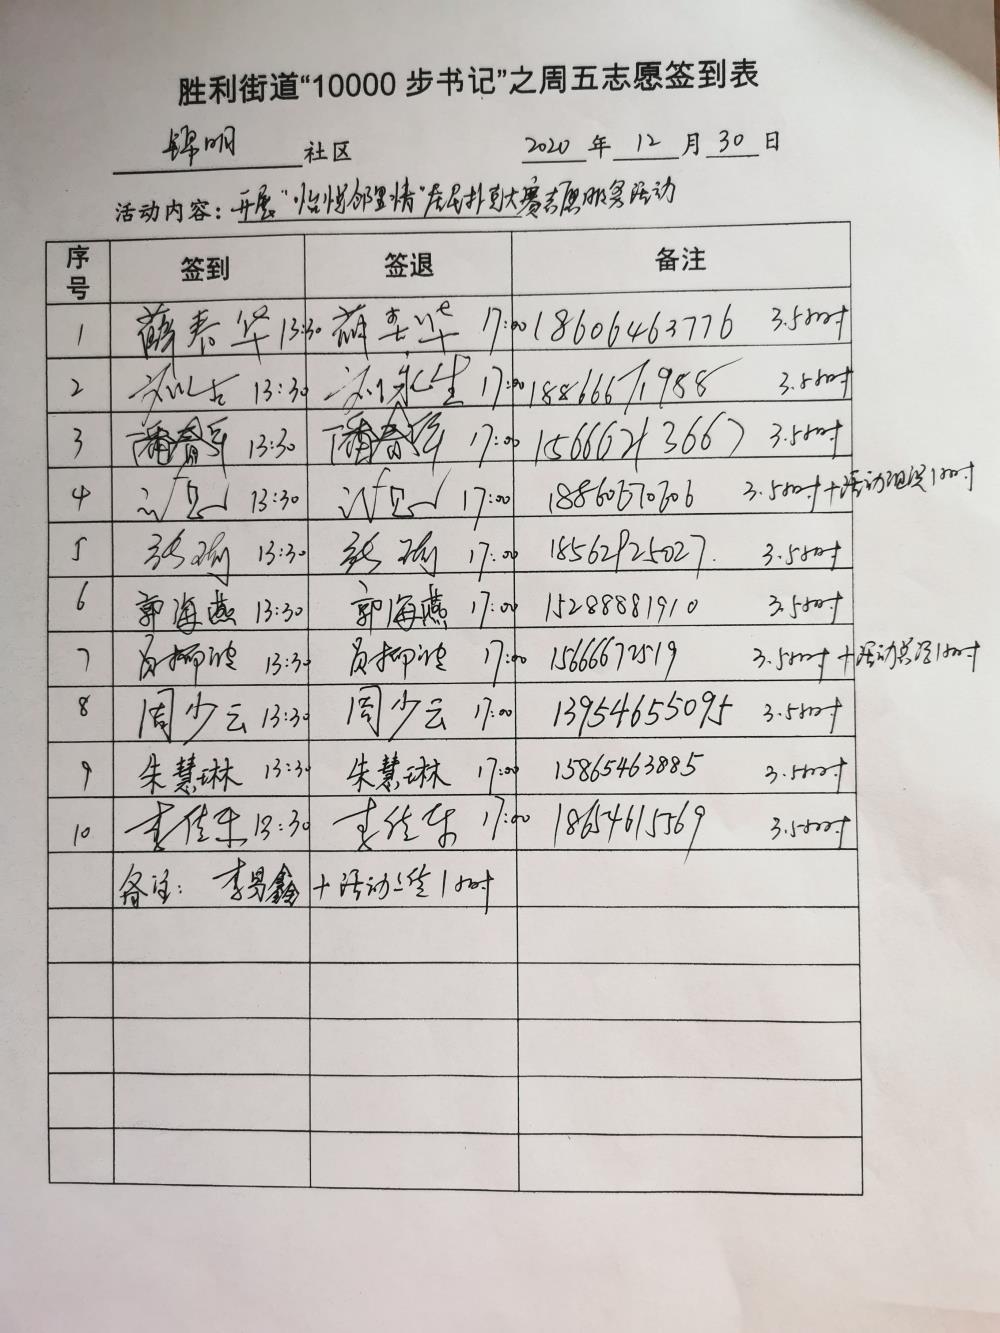 胜利街道“10000步书记”之周五志愿签到表
锦明 社区 2020 年 12 月 30 日
活动内容：开展“怡悦邻里情”居民扑克大赛志愿服务活动
序号 签到 签退 备注
1 薛春华 13:30 薛春华 17:00 18606463776 3.5小时
2 13:30 刘永生 17:00 18866671988 3.5小时
3 潘春华 13:30 潘春华 17:00 15666213667 3.5小时
4 13:30 17:00 18860570606 3.5小时+活动组织1小时
5 张瑜 13:30 张瑜 17:00 18562925027. 3.5小时
6 郭海燕 13:30 郭海燕 17:00 15288881910 3.5小时
7 13:30 17:00 15666672519 3.5小时+活动总结1小时
8 周少云 13:30 周少云 17:00 13954655095 3.5小时
9 朱慧琳 13:30 朱慧琳 17:00 15865463885 3.5小时
10 13:30 17:00 18654615569 3.5小时
备注： 李易鑫 +活动上传1小时